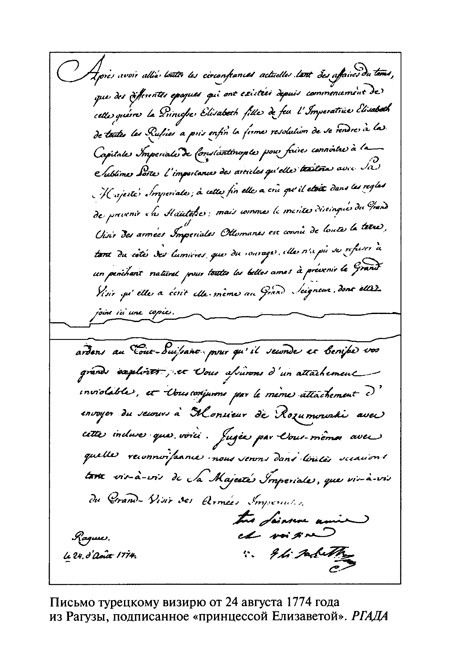 Après avoir allié toutes les circonstances actuelles tant des affaires du tems,
que des differentes epoques qui ont existées depuis commencement de
cette guerre la Princesse Elisabeth fille de feu l'Imperatrice Elisabeth
de toutes les Russies a pris enfin la ferme resolution de se rendre à la
Capitale Imperiale de Constantinople pour faire connoitre à la
Sublime Porte l'importance des articles qu'elle traitera avec Sa
Majesté Imperiale; à cette fin elle a cru qu'il etoit dans les regles
de prevenir Sa Hautesse; mais comme le merite distingué du Grand
Visir des armées Imperiales Ottomanes est connu de toute la terre,
tant du côté des lumieres, que du courage, elle n'a pû se refuser à
un penchant naturel pour toutes les belles ames à prévenir le Grand
Visir qu'elle a écrit elle-même au Grand Seigneur, dont elle
joint ici une copie.
ardens au Tout-Puissant pour qu'il seconde et benisse vos
grands exploits, et Vous assurons d'un attachement
inviolable, et Vous conjurons par le même attachement d'
envoyer du secours à Monsieur de Rozumowski avec
cette incluse que voici. Jugée par Vous-mêmes avec
quelle reconnoissance nous serons dans toutes occasions
tant vis-à-vis de Sa Majesté Imperiale, que vis-à-vis
du Grand-Visir des Armées Imperiales.
amie
et voisine
Raguse.
le 24. d'Août 1774.
Elisabeth
Письмо турецкому визирю от 24 августа 1774 года
из Рагузы, подписанное «принцессой Елизаветой». РГАДА